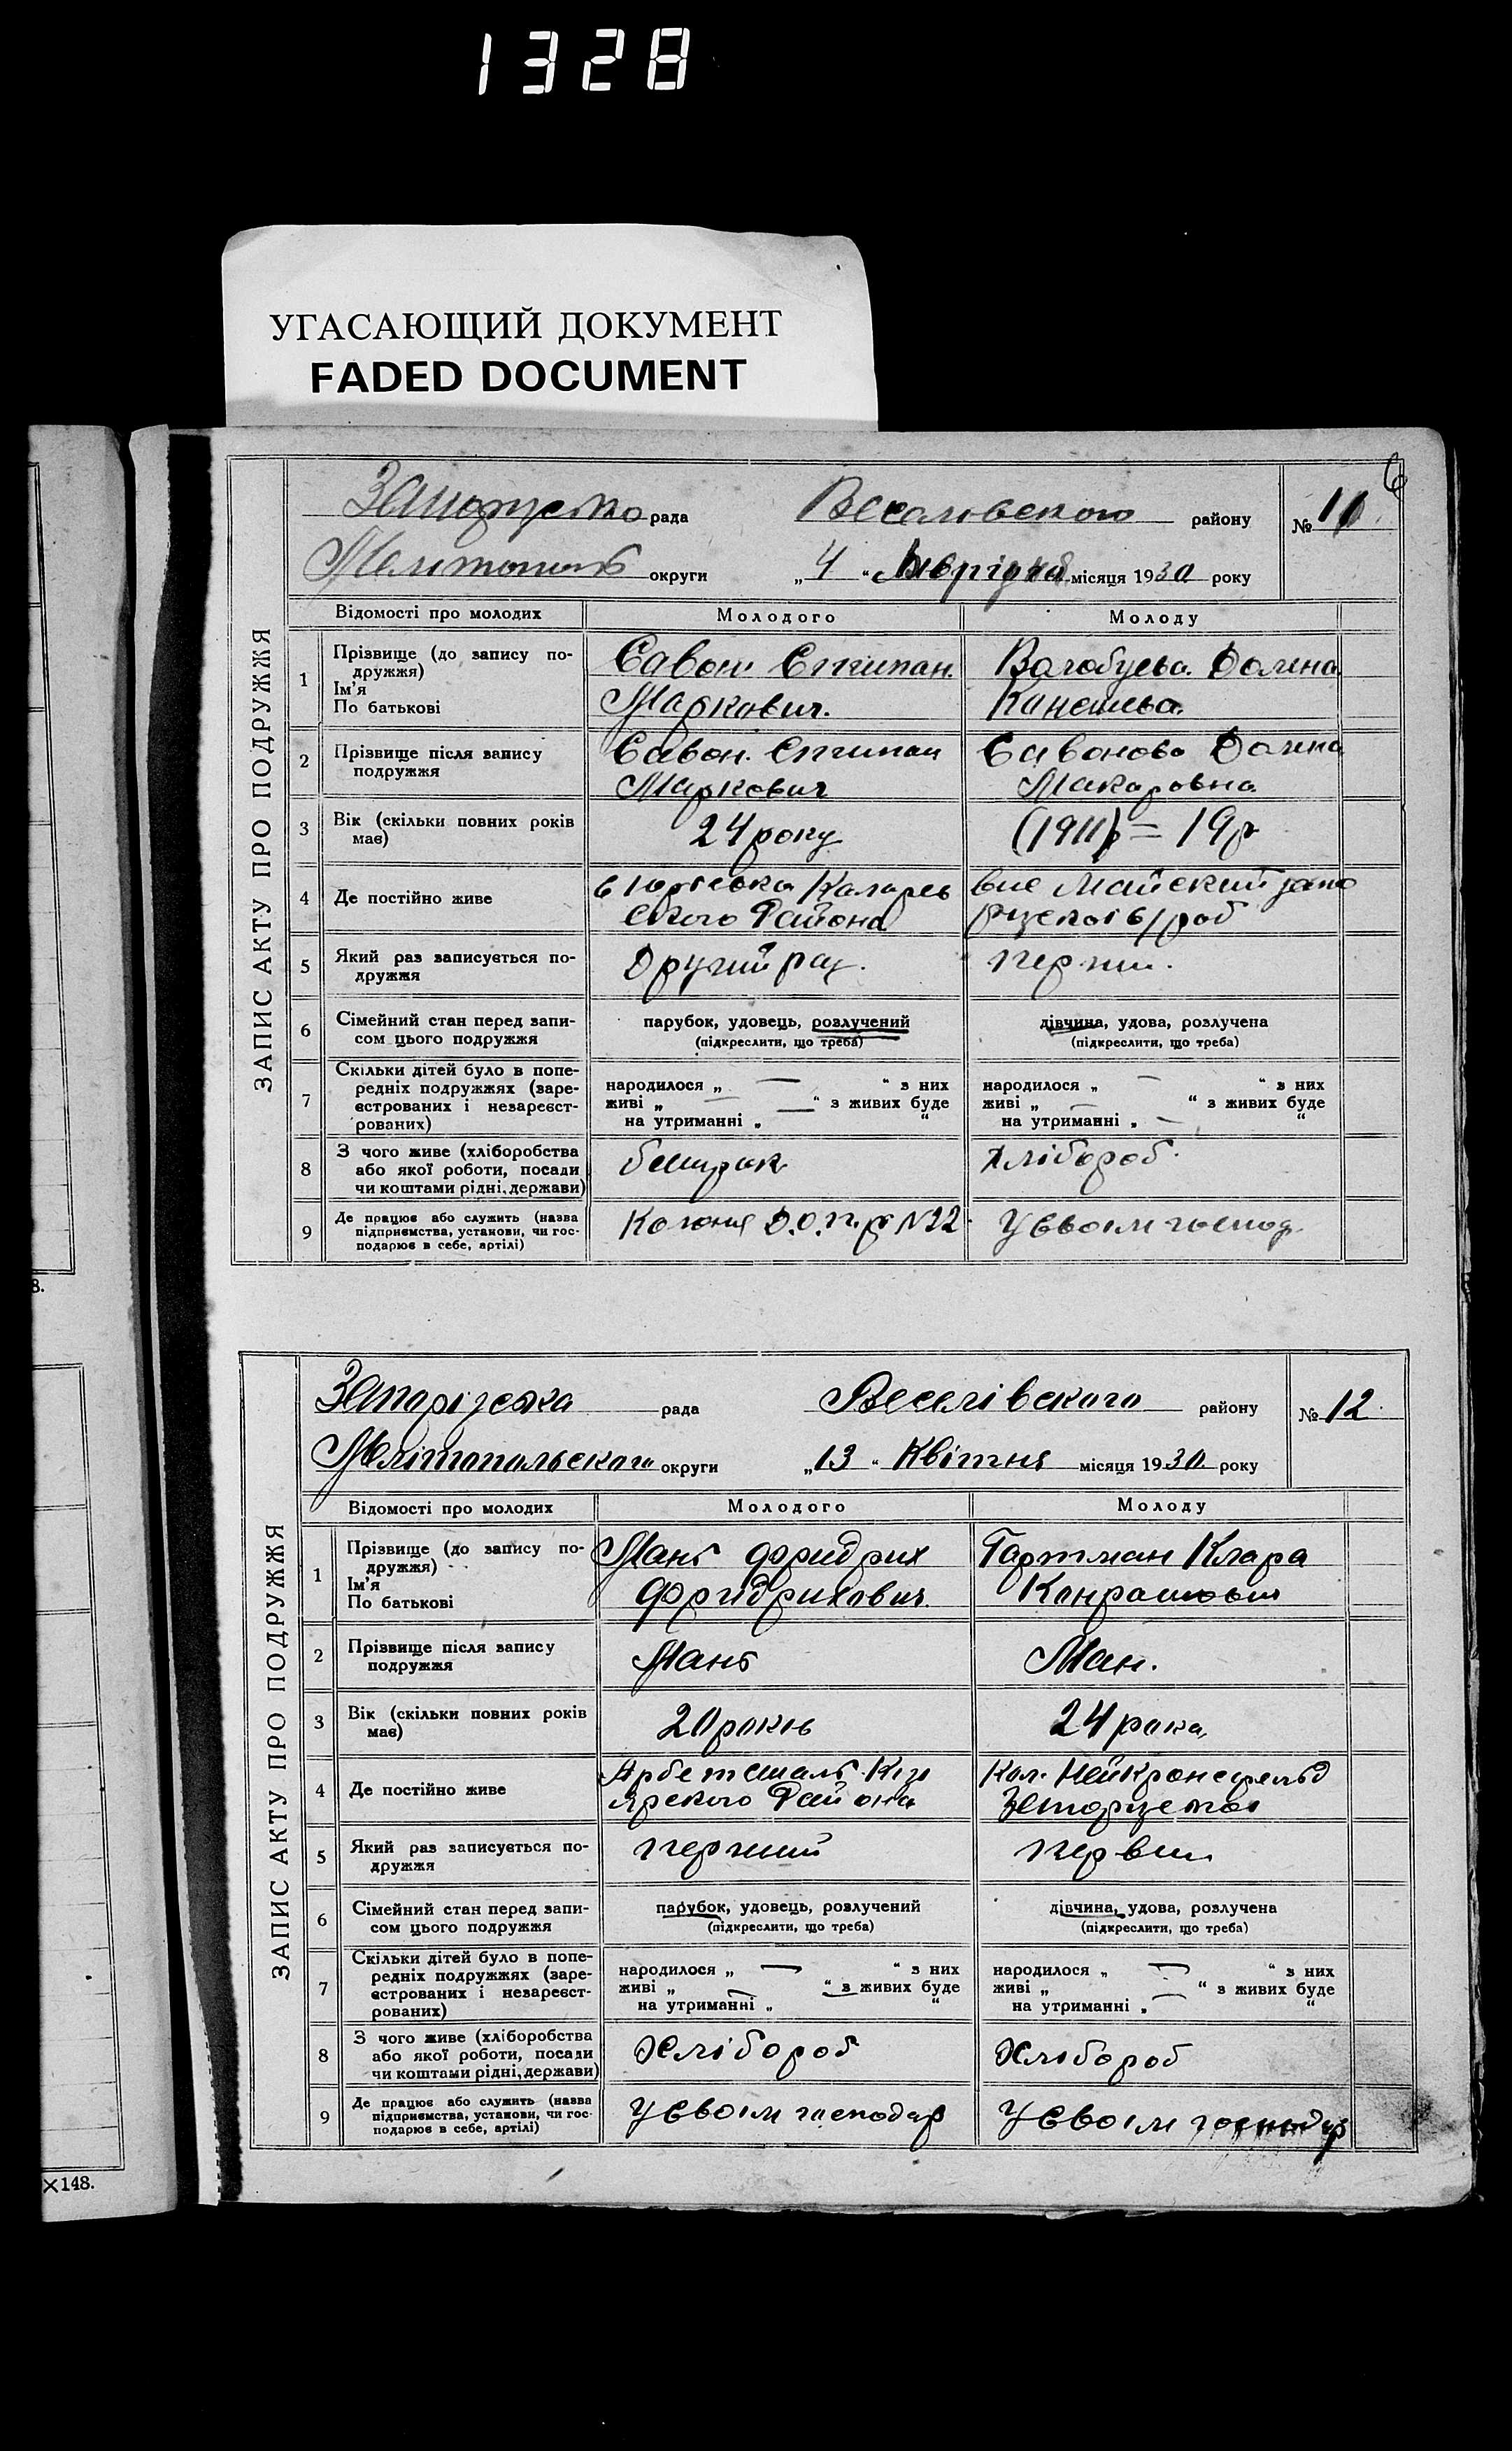 1328
УГАСАЮЩИЙ ДОКУМЕНТ
FADED DOCUMENT
6
ЗАПИС АКТУ ПРО ПОДРУЖЖЯ
рада Веселовского району № 11
округи „ 4 “ місяця 1930 року
Відомості про молодих Молодого Молоду
1 Прізвище (до запису по-
дружжя)
Ім'я
По батькові
Савон Степан
Маркович.
2 Прізвище після запису
подружжя
Савон. Степан
Маркович
Савонова
Макаровна
3 Вік (скільки повних років
має)
24 року
(1911) = 19р
4 Де постійно живе
Района
Майский
5 Який раз записується по-
дружжя
Другий раз.
перши.
6 Сімейний стан перед запи-
сом цього подружжя
парубок, удовець, розлучений
(підкреслити, що треба)
дівчина, удова, розлучена
(підкреслити, що треба)
7 Скільки дітей було в попе-
редніх подружжях (заре-
єстрованих і незареєст-
рованих)
народилося „ — “ з них
живі „ — “ з живих буде
на утриманні „ — “
народилося „ — “ з них
живі „ — “ з живих буде
на утриманні „ — “
8 З чого живе (хліборобства
або якої роботи, посади
чи коштами рідні, держави)
хлібороб.
9 Де працює або служить (назва
підприємства, установи, чи гос-
подарює в себе, артілі)
N22
У своім господ.
ЗАПИС АКТУ ПРО ПОДРУЖЖЯ
Запорізька рада Веселівского району № 12.
Мелітопольского округи „13“ Квітня місяця 1930 року
Відомості про молодих Молодого Молоду
1 Прізвище (до запису по-
дружжя)
Ім'я
По батькові
Мань Фридрих
Фридрихович.
Гартман Клара
2 Прізвище після запису
подружжя
Мань
Ман.
3 Вік (скільки повних років
має)
20 років
24 рока
4 Де постійно живе
Района
Кол. Нейкронсфельд
5 Який раз записується по-
дружжя
перший
перви
6 Сімейний стан перед запи-
сом цього подружжя
парубок, удовець, розлучений
(підкреслити, що треба)
дівчина, удова, розлучена
(підкреслити, що треба)
7 Скільки дітей було в попе-
редніх подружжях (заре-
єстрованих і незареєст-
рованих)
народилося „ — “ з них
живі „ — “ з живих буде
на утриманні „ “
народилося „ — “ з них
живі „ — “ з живих буде
на утриманні „ “
8 З чого живе (хліборобства
або якої роботи, посади
чи коштами рідні, держави)
Хлібороб
Хлібороб
9 Де працює або служить (назва
підприємства, установи, чи гос-
подарює в себе, артілі)
У своім господар
У своім господар
8.
×148.